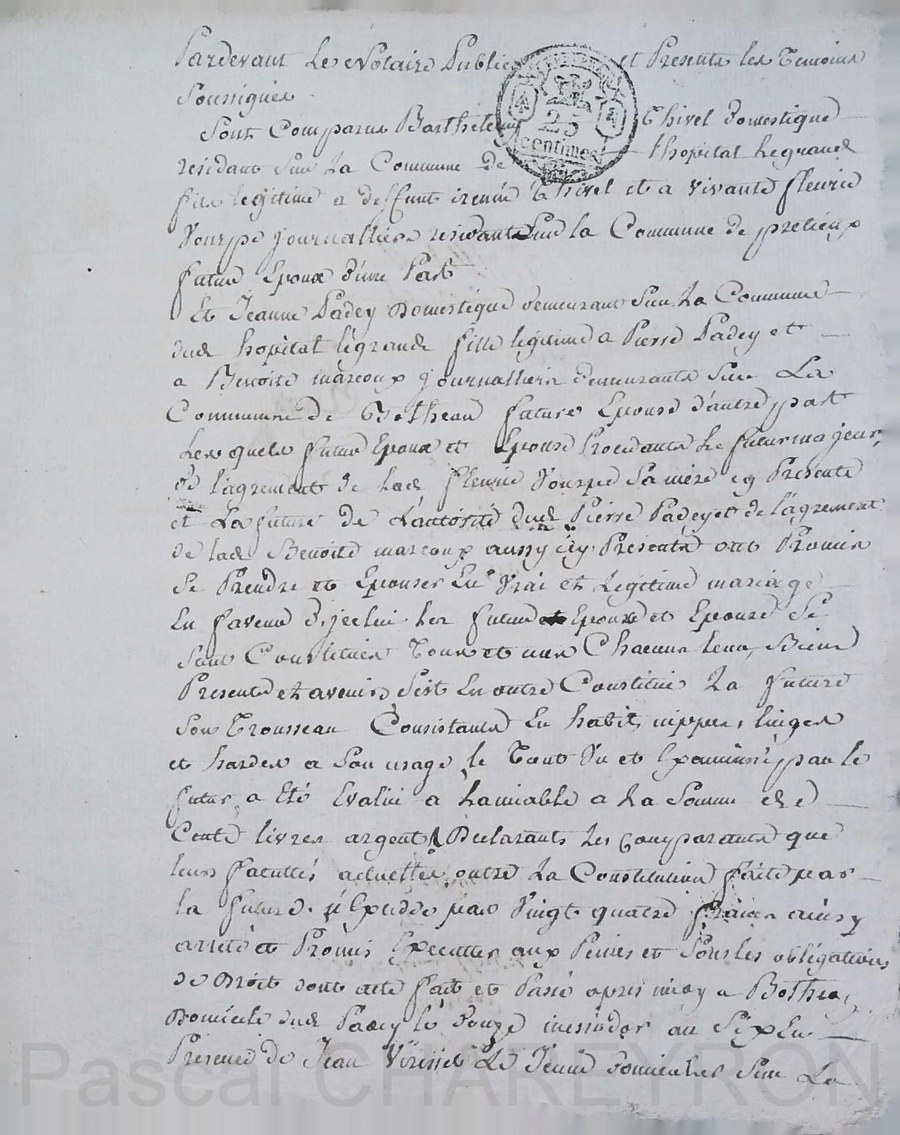 Pardevant Le Notaire Public et Presents les Temoins
Soussignes
Sont Comparus Barthelemy Thivel domestique
residant Sur La Commune de L'hopital Legrand
fils legitime a deffunt irenée Thivel et a vivante fleurie
journalliere residante Sur la Commune de pretieux
futur Epoux d'une Part
Et Jeanne Padey Domestique demeurant Sur La Commune
dud hopital legrand fille legitime a Pierre Padey et
a Benoite marcoux journalliers demeurants Sur La
Commune de Botheau future Epouse d'autre part
Lesquels futur Epoux et Epouse Procedants Le futur majeur,
de l'agrement de lad fleurie Sa mere cy Presente
et La future de L'autorité dud Pierre Padey et de l'agrement
de lad Benoite marcoux aussy icy Presents ont Promis
Se Prendre et Epouser En Vrai et Legitime mariage
En faveur d'jcelui les futurs Epoux et Epouse Se
Sont Constitués Tous et uns Chacuns leurs Biens
Presents et avenirs S'est En outre Constitué La future
Son Trousseau Consistant En habits, nippes, linges
et hardes a Son usage le Tout Vu et Examiné par le
futur a Eté Evalué a Lamiable a La Somme de
Cent livres argent Declarants Les Comparants que
leurs facultés actuelles outre La Constitution faite par
la future n'Excede pas Vingt quatre francs ainsy
arreté et Promis Executer aux Peines et Sous les obligations
de Droit dont acte fait et Passé apres midy a Botheau
Domicile dud Padey le douze messidor an Six En
Presence de Jean Le Jeune domicilies Sur La
Pascal CHAREYRON
25
centimes